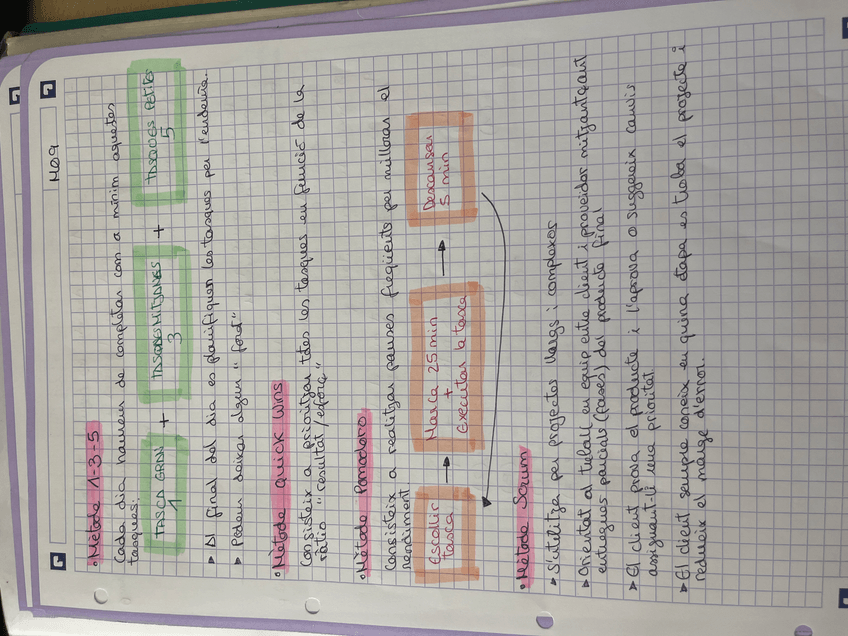 M09
• Mètode 1-3-5
Cada dia haurem de completar com a mínim aquestes
tasques:
TASCA GRAN
1
+
TASQUES MITJANES
3
+
TASQUES PETITES
5
➤ Al final del dia es planifiquen les tasques per l'endemà.
➤ Podem deixar algun "forat"
• Mètode QUICK WINS
Consisteix a prioritzar totes les tasques en funció de la
ràtio "resultat/esforç"
• Mètode Pomodoro
Consisteix a realitzar pauses freqüents per millorar el
rendiment
Escollir
tasca
→
Marca 25 min
+
Executar la tasca
→
Descansar
5 min
• Mètode Scrum
➤ S'utilitza per projectes llargs i complexos
➤ Orientat al treball en equip entre client i proveidor mitjantçant
entregues parcials (fases) del producte final
➤ El client prova el producte i l'aprova o suggereix canvis
assignant-li una prioritat.
➤ El client sempre coneix en quina etapa es troba el projecte i
redueix el marge d'error.